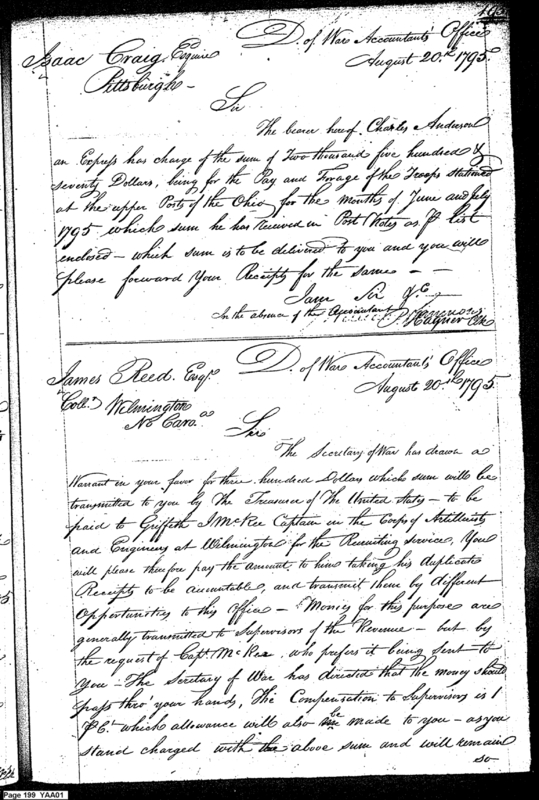 D. of War Accountant's Office
August 20th 1795
Isaac Craig Esquire
Pittsburgh
Sir
The bearer hereof Charles Anderson
an Express has charge of the sum of Two thousand five hundred &
seventy Dollars, being for the Pay and Forage of the Troops stationed
at the upper Posts of the Ohio for the months of June and July
1795 which sum he has Received in Post Notes as P list
enclosed – which sum is to be delivered to you and you will
please forward Your Receipts for the same – –
I am Sir &c
In the absence of the Accountant
P. Hagner Clk
D. of War Accountant's Office
August 20th 1795
James Reed. Esqr.
Collr. Wilmington
No Cara.
Sir
The Secretary of War has drawn a
Warrant in your favor for three hundred Dollars which sum will be
transmitted to you by The Treasurer of The United States – to be
paid to Griffith J McRee Captain in the Corps of Artillerists
and Engineers at Wilmington for the Recruiting service, You
will please therefore pay the amount to him taking his duplicate
Receipts to be accountable, and transmit them by different
Opportunities to this Office – Monies for this purpose are
generally transmitted to Supervisors of the Revenue – but by
the request of Capt. McRee, who prefers it being sent to
You – The Secretary of War has directed that the money should
pass thro' your hands, The Compensation to Supervisors is 1
P Ct. which allowance will also be made to you – as you
stand charged with the above sum and will remain
so
Page 199 YAA01